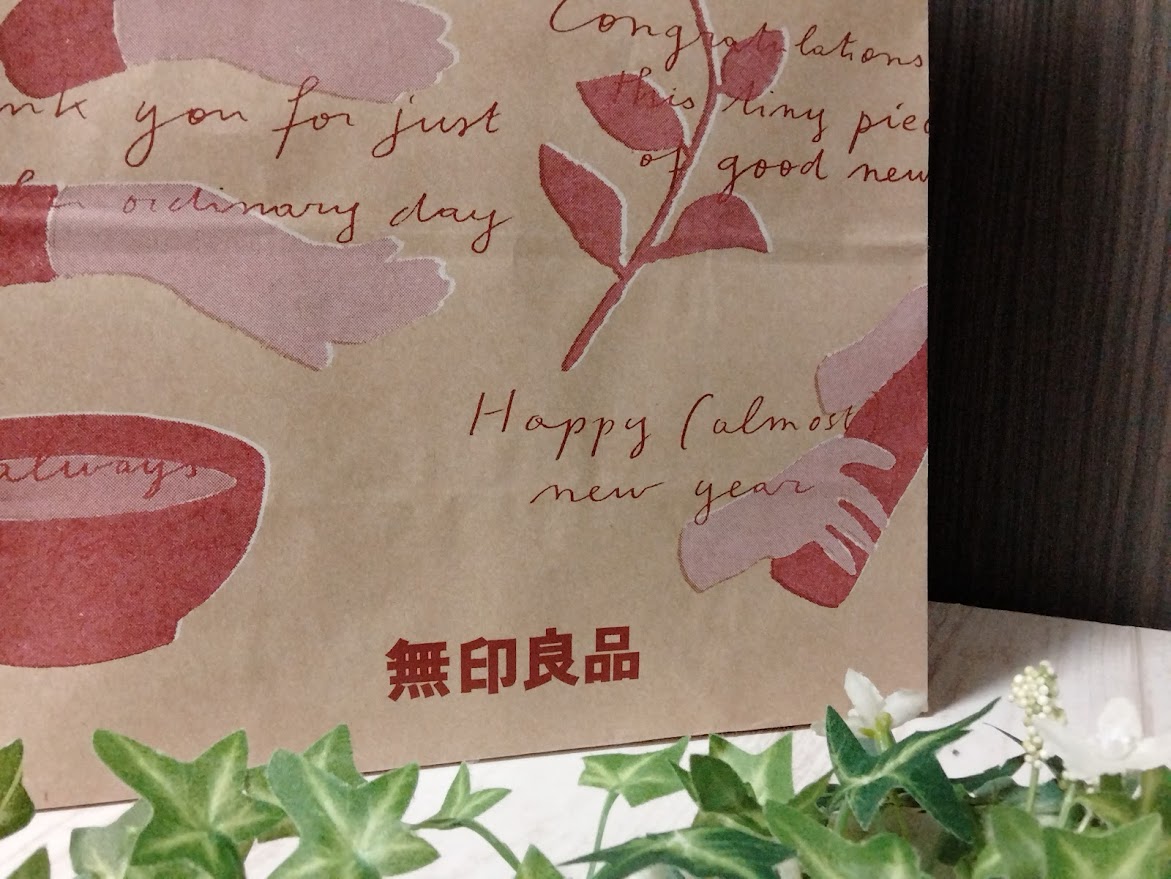 Congratulations
this tiny piec
of good new
nk you for just
ordinary day
always
Happy (almost
new year
無印良品